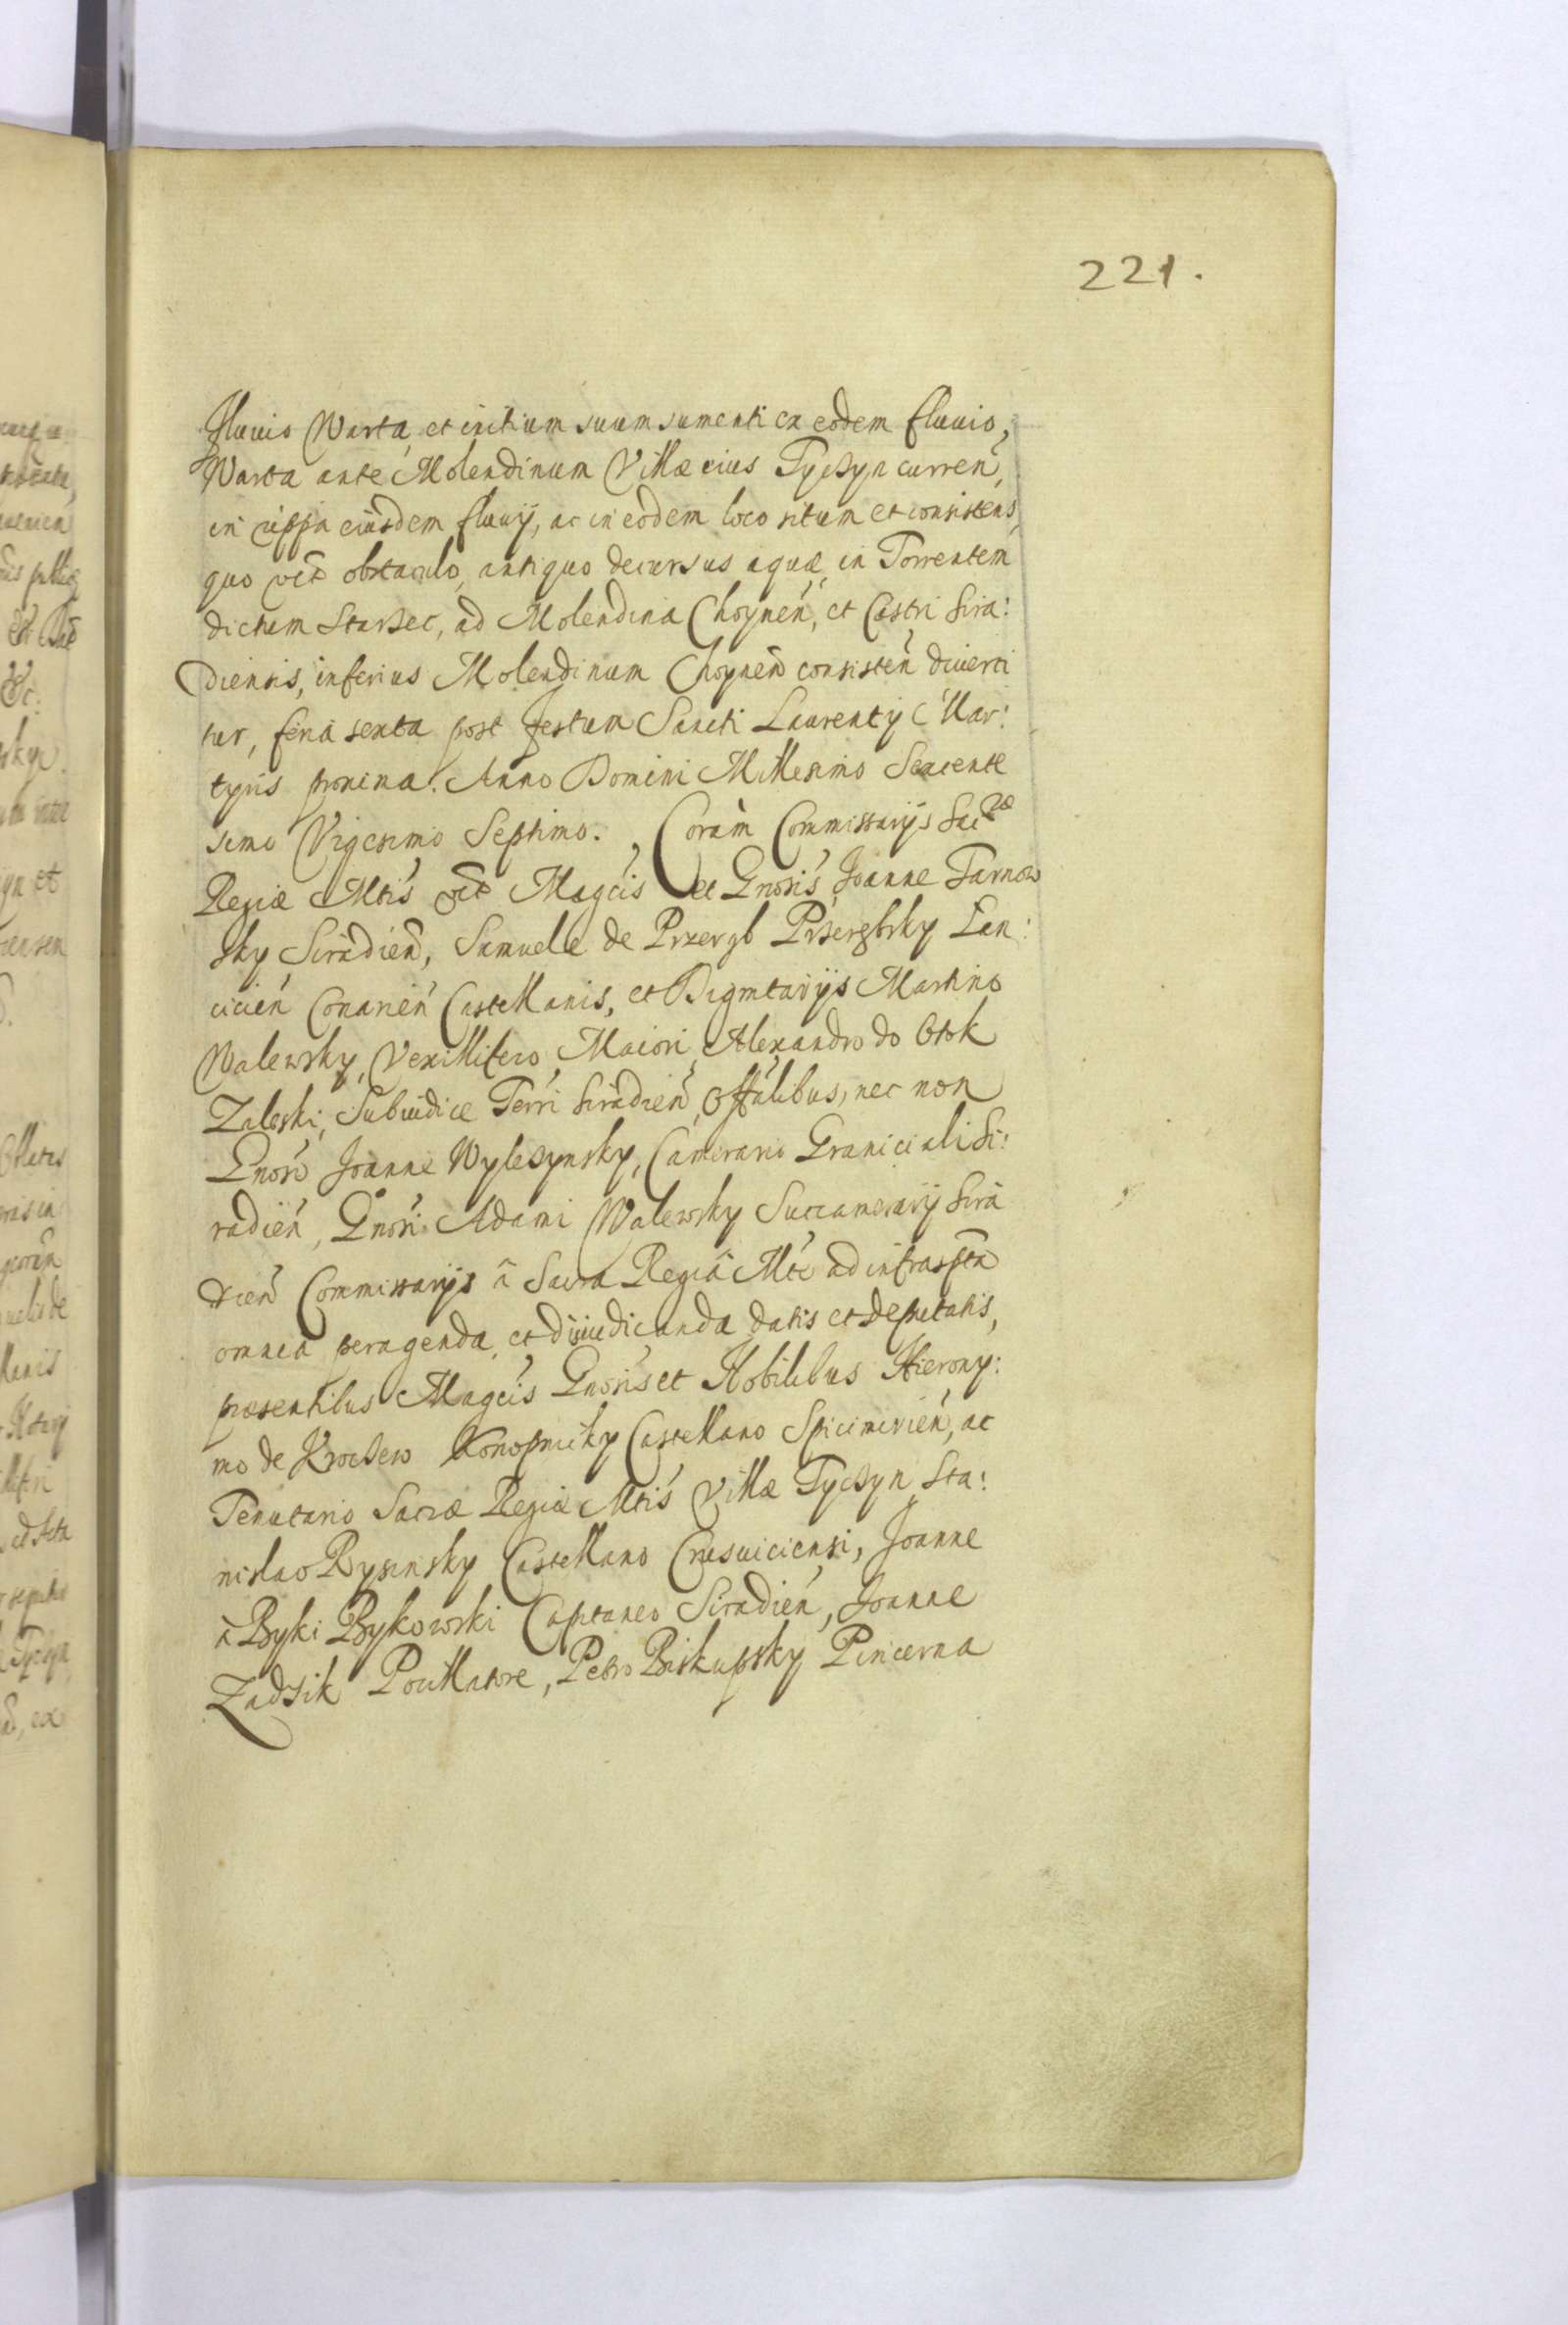 221.
Fluuio Warta, et initium suum sumenti ex eodem fluuio,
Warta ante Molendinum Villæ eius Tyczyn curren,
in rippa eiusdem fluuij, ac in eodem loco situm et consistens,
quo vid obstaculo, antiquo decursus aquæ, in Torrentem
dictum Starzec, ad Molendina Choynen, et Castri Sira:
diensis, inferius Molendinum Choynen consisten diuerti
tur, feria sexta post festum Sancti Laurentij Mar:
tyris proxima. Anno Domini Millesimo Sexcente
simo Vigesimo Septimo. Coram Commissarijs Sacræ
Regiæ Mtis vid Magcis et Gnosis Joanne Tarnow
sky Siradien, Samuele de Przergb Przerębsky Lan:
cicien Conarien Castellanis, et Digmtarijs Martino
Walewsky, Vexillifero, Maiori, Alexandro do Otok
Zaleski, Subiudice Terri Siradien, Offalibus, nec non
Gnoso Joanne Wylezynsky, Camerario Granicieali Si:
radien, Gnosi Adami Walewsky Succamerarij Sira
dien Commissarijs à Sacra Regia Mte ad infrascta
omnia peragenda, et diiudicanda datis et deputatis,
præsentibus Magcis Gnosis et Nobilibus Hierony:
mo de Kroczew Konopnicky Castellano Spicimirien, ac
Tenutario Sacræ Regiæ Mtis Villæ Tyczyn Sta:
nislao Rysinsky Castellano Crusuiciensi, Joanne
à Byki Bykowski Capitaneo Siradien, Joanne
Zadzik Pocillatore, Petro Biskupsky Pincerna